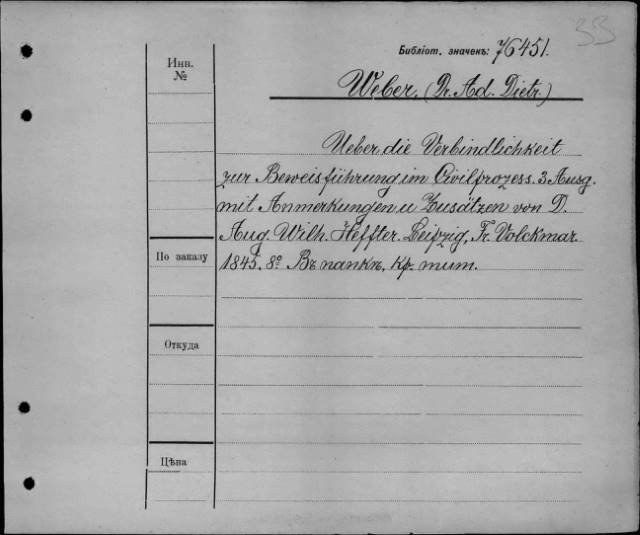 33
Библіот. значенъ: 76451.
Инв.
№
Weber. (Dr. Ad. Dietr.)
Ueber die Verbindlichkeit
zur Beweisführung im Civilprozess. 3 Ausg.
mit Anmerkungen u Zusätzen von D.
Aug. Wilh. Heffter. Leipzig, Fr. Volckmar
1845. 8º Въ папкѣ, кр. тит.
По заказу
Откуда
Цѣна